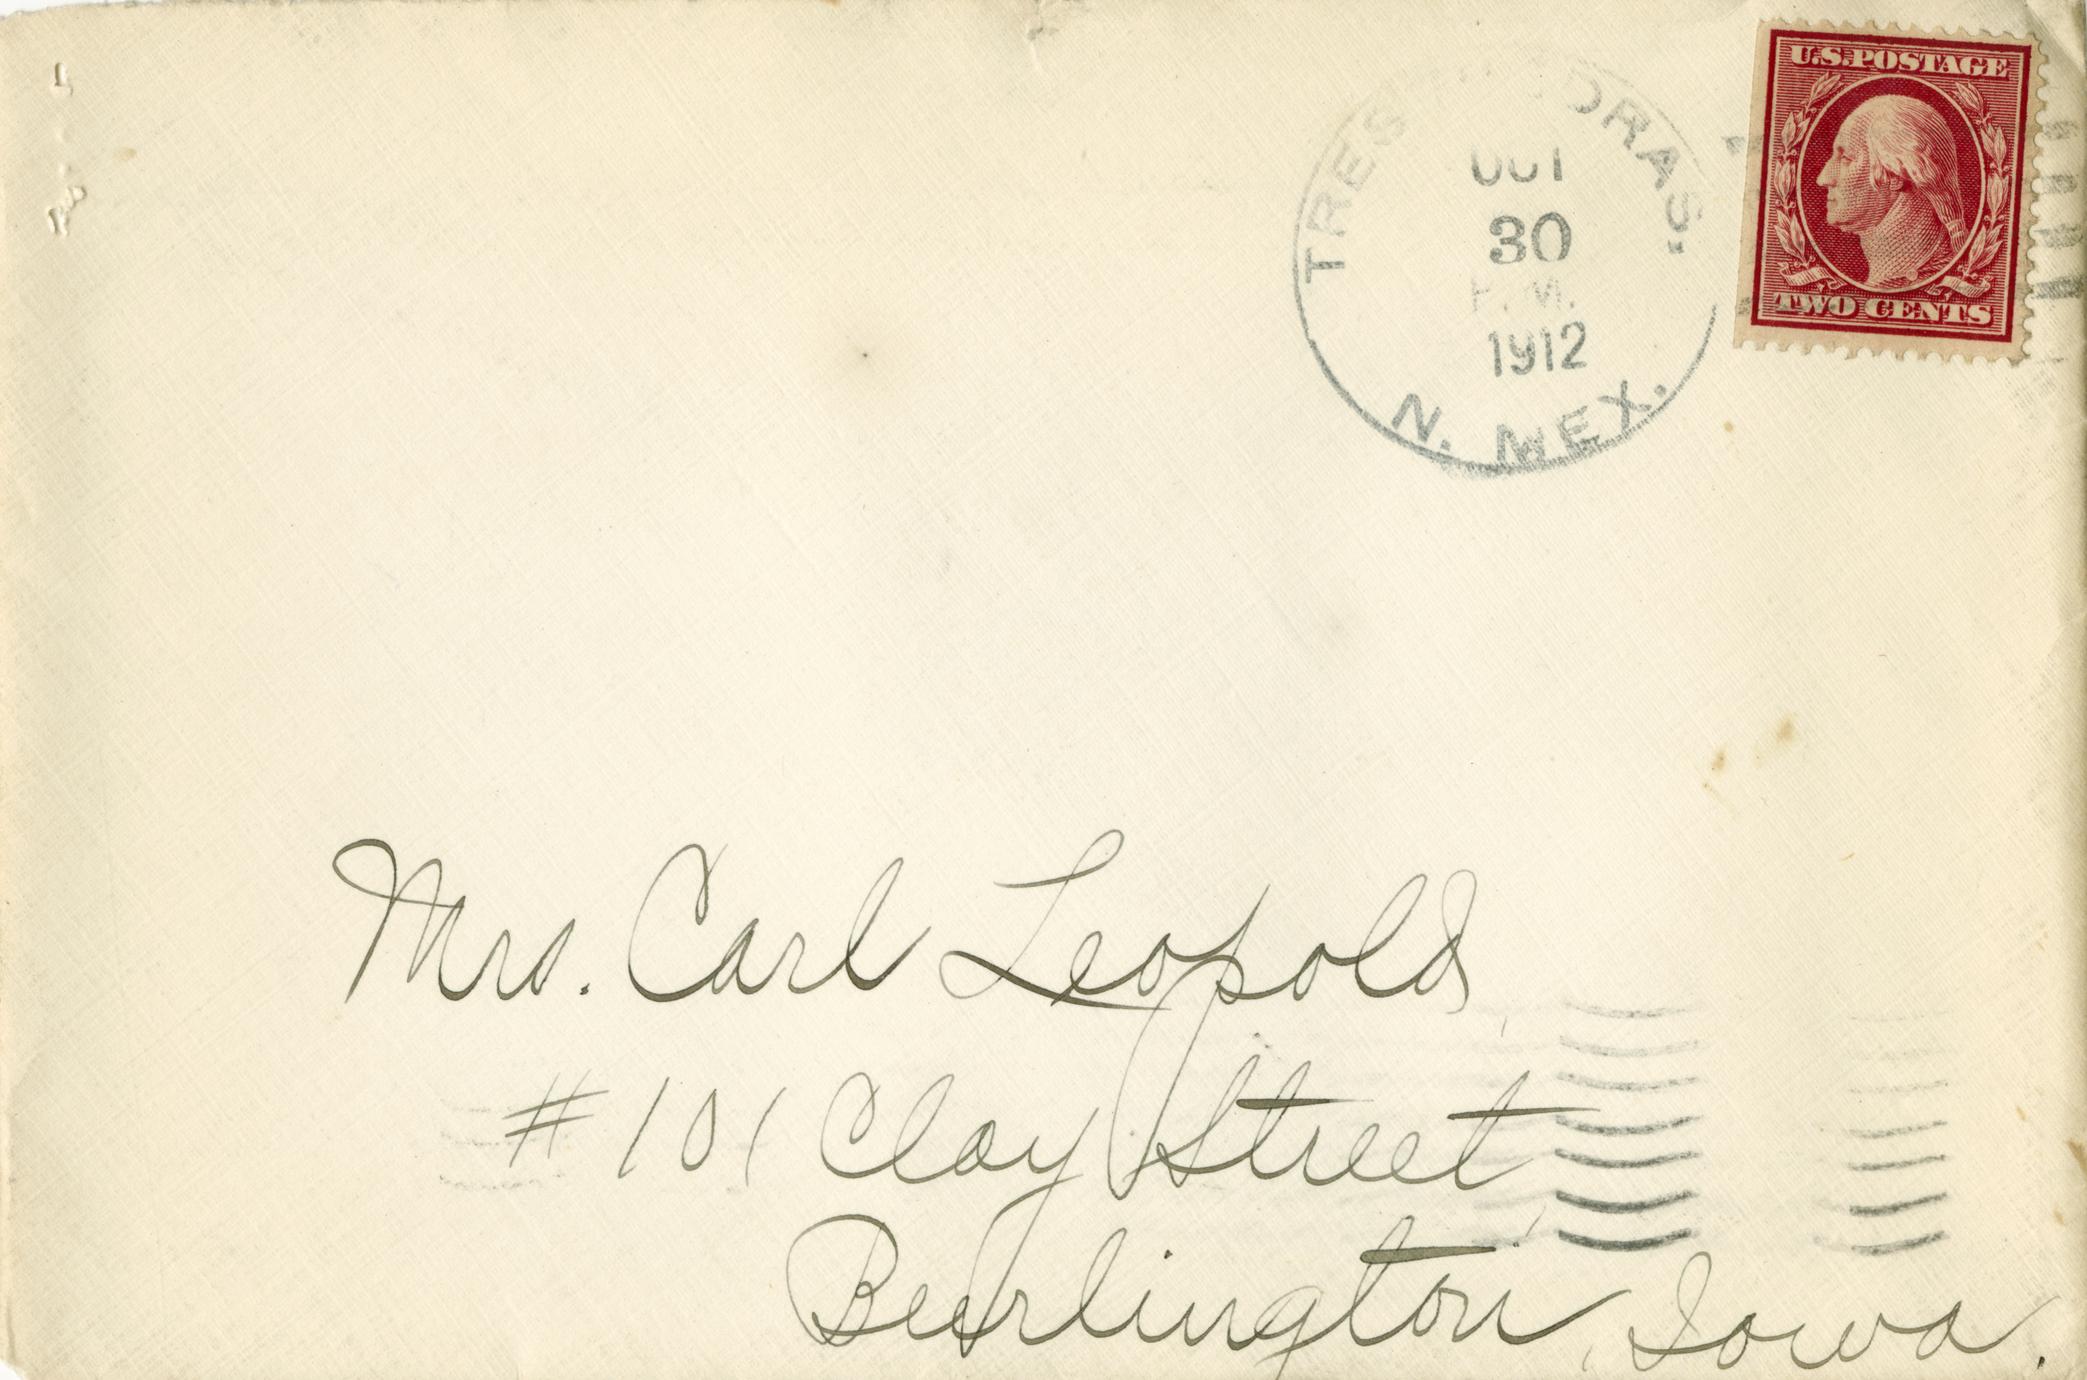 TRES
OCT
30
P. M.
1912
N. MEX.
U.S. POSTAGE
TWO CENTS
Mrs. Carl Leopold,
#101 Clay Street,
Burlington, Iowa.